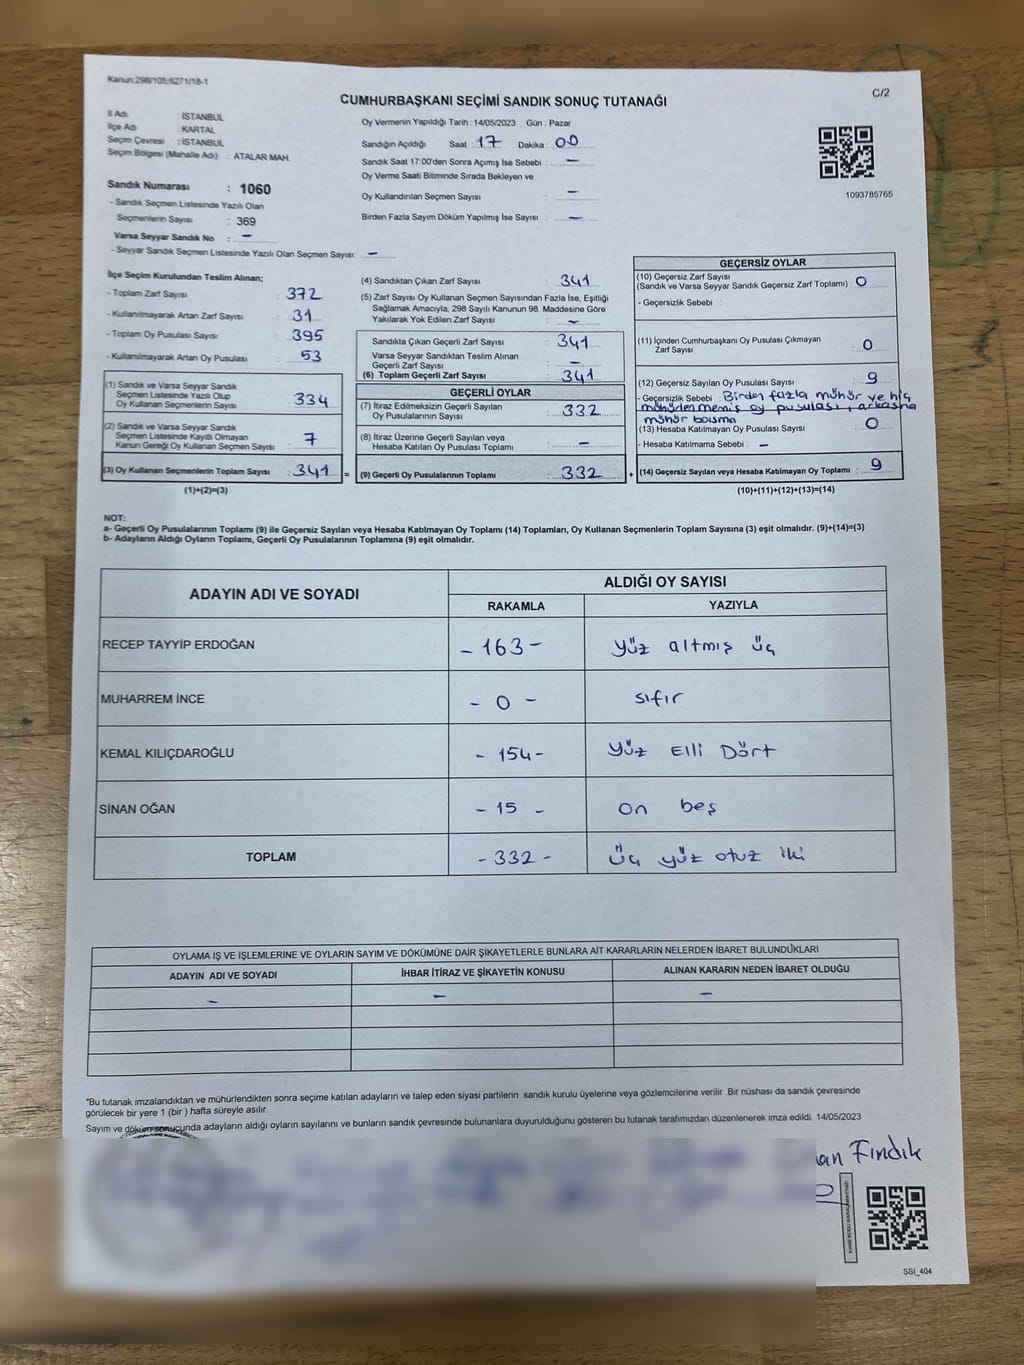 Kanun;298/105;6271/18-1
C/2
CUMHURBAŞKANI SEÇİMİ SANDIK SONUÇ TUTANAĞI
İl Adı : İSTANBUL
İlçe Adı : KARTAL
Seçim Çevresi : İSTANBUL
Seçim Bölgesi (Mahalle Adı) : ATALAR MAH.
Sandık Numarası : 1060
- Sandık Seçmen Listesinde Yazılı Olan
Seçmenlerin Sayısı : 369
Varsa Seyyar Sandık No : -
- Seyyar Sandık Seçmen Listesinde Yazılı Olan Seçmen Sayısı: -
Oy Vermenin Yapıldığı Tarih : 14/05/2023 Gün : Pazar
Sandığın Açıldığı Saat : 17 Dakika : 00
Sandık Saat 17:00'den Sonra Açımış İse Sebebi : -
Oy Verme Saati Bitiminde Sırada Bekleyen ve
Oy Kullandırılan Seçmen Sayısı : -
Birden Fazla Sayım Döküm Yapılmış İse Sayısı : -
1093785765
İlçe Seçim Kurulundan Teslim Alınan;
- Toplam Zarf Sayısı : 372
- Kullanılmayarak Artan Zarf Sayısı : 31
- Toplam Oy Pusulası Sayısı : 395
- Kullanılmayarak Artan Oy Pusulası : 53
(1) Sandık ve Varsa Seyyar Sandık
Seçmen Listesinde Yazılı Olup
Oy Kullanan Seçmenlerin Sayısı : 334
(2) Sandık ve Varsa Seyyar Sandık
Seçmen Listesinde Kayıtlı Olmayan
Kanun Gereği Oy Kullanan Seçmen Sayısı : 7
(3) Oy Kullanan Seçmenlerin Toplam Sayısı : 341 =
(1)+(2)=(3)
(4) Sandıktan Çıkan Zarf Sayısı : 341
(5) Zarf Sayısı Oy Kullanan Seçmen Sayısından Fazla İse, Eşitliği
Sağlamak Amacıyla, 298 Sayılı Kanunun 98. Maddesine Göre
Yakılarak Yok Edilen Zarf Sayısı : -
Sandıkta Çıkan Geçerli Zarf Sayısı : 341
Varsa Seyyar Sandıktan Teslim Alınan
Geçerli Zarf Sayısı : -
(6) Toplam Geçerli Zarf Sayısı : 341
GEÇERLİ OYLAR
(7) İtiraz Edilmeksizin Geçerli Sayılan
Oy Pusulalarının Sayısı : 332
(8) İtiraz Üzerine Geçerli Sayılan veya
Hesaba Katılan Oy Pusulası Toplamı : -
(9) Geçerli Oy Pusulalarının Toplamı : 332 +
GEÇERSİZ OYLAR
(10) Geçersiz Zarf Sayısı
(Sandık ve Varsa Seyyar Sandık Geçersiz Zarf Toplamı) : 0
- Geçersizlik Sebebi :
(11) İçinden Cumhurbaşkanı Oy Pusulası Çıkmayan
Zarf Sayısı : 0
(12) Geçersiz Sayılan Oy Pusulası Sayısı : 9
- Geçersizlik Sebebi : Birden fazla mühür ve hiç
mühürlenmemiş oy pusulası, arkasına
mühür basma
(13) Hesaba Katılmayan Oy Pusulası Sayısı : 0
- Hesaba Katılmama Sebebi : -
(14) Geçersiz Sayılan veya Hesaba Katılmayan Oy Toplamı : 9
(10)+(11)+(12)+(13)=(14)
NOT:
a- Geçerli Oy Pusulalarının Toplamı (9) ile Geçersiz Sayılan veya Hesaba Katılmayan Oy Toplamı (14) Toplamları, Oy Kullanan Seçmenlerin Toplam Sayısına (3) eşit olmalıdır. (9)+(14)=(3)
b- Adayların Aldığı Oyların Toplamı, Geçerli Oy Pusulalarının Toplamına (9) eşit olmalıdır.
ADAYIN ADI VE SOYADI
ALDIĞI OY SAYISI
RAKAMLA YAZIYLA
RECEP TAYYİP ERDOĞAN - 163 - yüz altmış üç
MUHARREM İNCE - 0 - sıfır
KEMAL KILIÇDAROĞLU - 154 - yüz Elli Dört
SİNAN OĞAN - 15 - on beş
TOPLAM - 332 - üç yüz otuz iki
OYLAMA İŞ VE İŞLEMLERİNE VE OYLARIN SAYIM VE DÖKÜMÜNE DAİR ŞİKAYETLERLE BUNLARA AİT KARARLARIN NELERDEN İBARET BULUNDUKLARI
ADAYIN ADI VE SOYADI İHBAR İTİRAZ VE ŞİKAYETİN KONUSU ALINAN KARARIN NEDEN İBARET OLDUĞU
- - -
"Bu tutanak imzalandıktan ve mühürlendikten sonra seçime katılan adayların ve talep eden siyasi partilerin sandık kurulu üyelerine veya gözlemcilerine verilir. Bir nüshası da sandık çevresinde
görülecek bir yere 1 (bir ) hafta süreyle asılır.
Sayım ve döküm sonucunda adayların aldığı oyların sayılarını ve bunların sandık çevresinde bulunanlara duyurulduğunu gösteren bu tutanak tarafımızdan düzenlenerek imza edildi. 14/05/2023
an Fındık
SSI_404